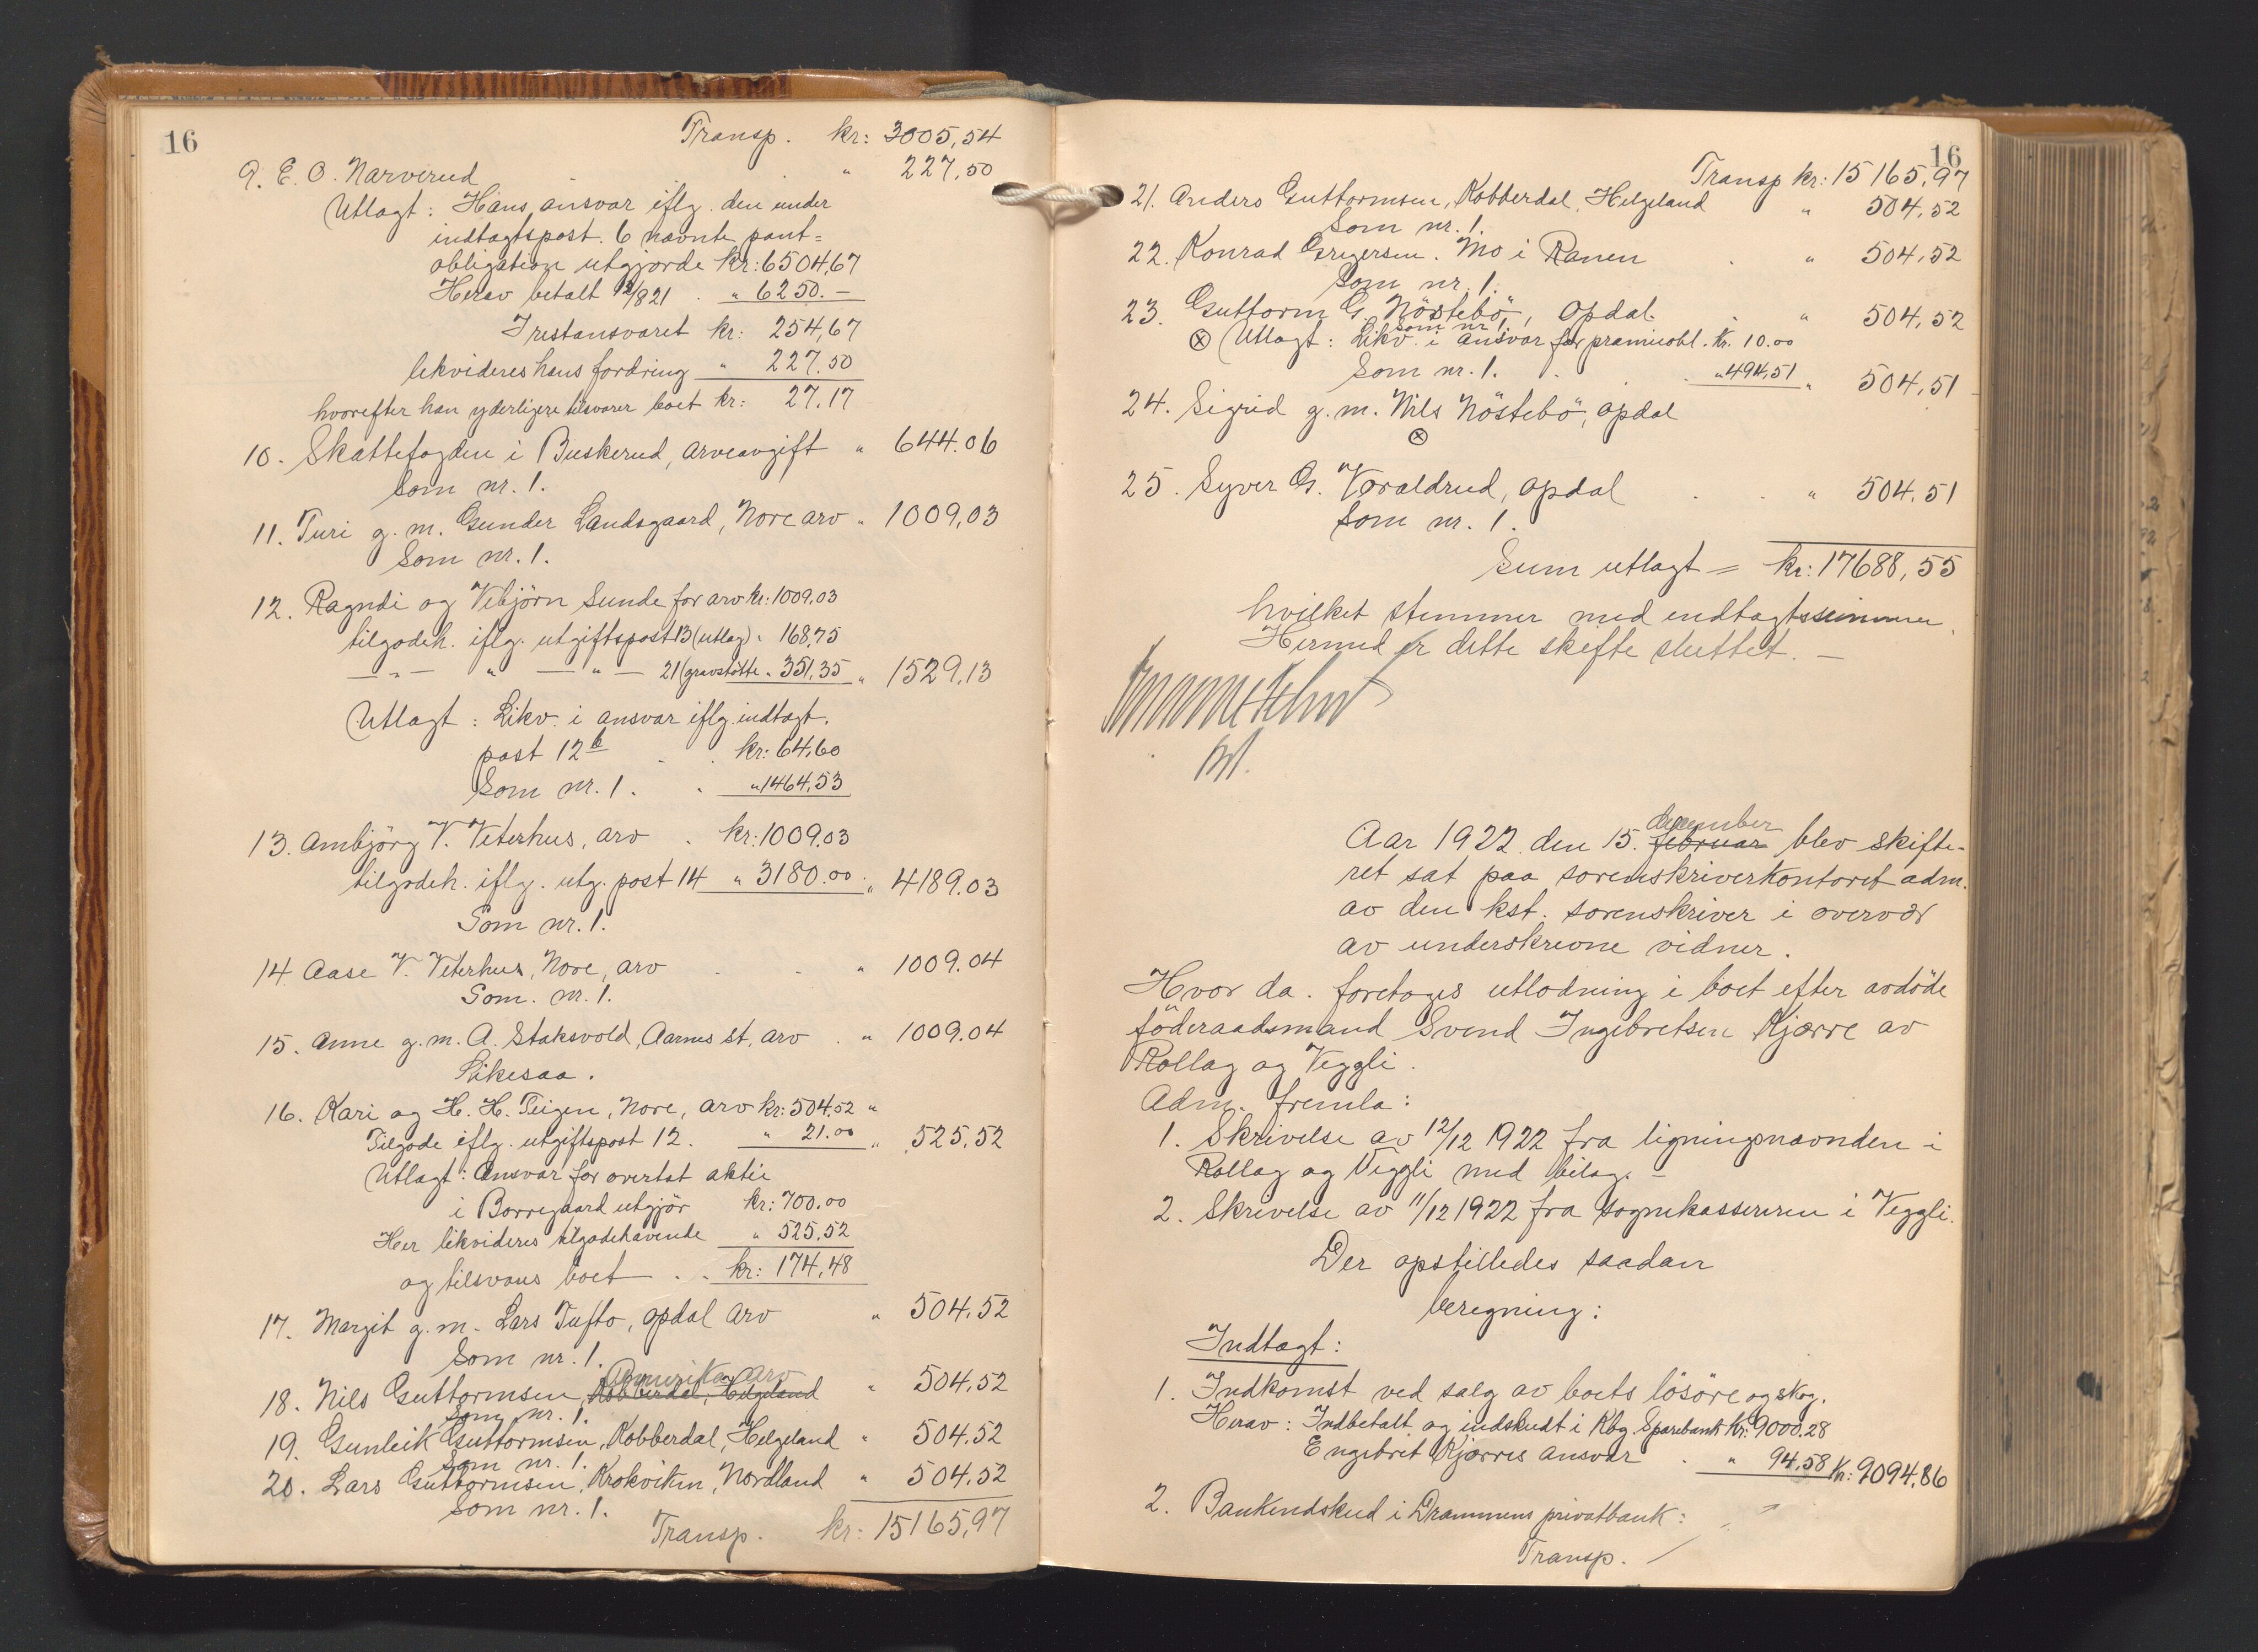 16
Transp. kr: 3005,54
9. E. O. Narverud " 227,50
Utlagt: Hans ansvar iflg. den under
indtægtspost. 6 nævnte pant=
obligation utgjorde kr: 6504,67
Herav betalt 12/8 21 . " 6250.–
Irestansvaret kr: 254,67
likvideres hans fordring " 227.50
hvorefter han yderligere tilsvarer boet kr: 27.17
10. Skattefogden i Buskerud, arveavgift " 644.06
Som nr. 1.
11. Turi g. m. Gunder Landsgaard, Nore arv " 1009,03
Som nr. 1.
12. Ragndi og Vebjörn Sunde for arv kr: 1009.03
tilgodeh. iflg. utgiftspost 13 (utlæg) " 168,75
— " — " — " — 21 (gravstötte " 351,35 " 1529,13
Utlagt: Likv. i ansvar iflg. indtægt.
post 12 b . . kr: 64,60
Som nr. 1. . " 1464,53
13. Ambjörg V. Veterhus, arv . kr: 1009.03
tilgodeh. iflg. utg. post 14 " 3180.00 " 4189.03
Som nr. 1.
14 Aase V. Veterhus, Nore, arv . . " 1009.04
Som. nr. 1.
15. Anne g. m. A. Staksvold, Aarnes st, arv . " 1009.04
Likesaa.
16. Kari og H. H. Teigen, Nore, arv kr: 504,52 "
Tilgode iflg. utgiftspost 12. " 21.00 " 525,52
Utlagt: Ansvar for overtat aktie
i Borregaard utgjör kr: 700.00
Her likvideres tilgodehavende " 525,52
og tilsvares boet . . kr: 174,48
17. Margit g. m. Lars Tufto, Opdal arv " 504,52
Som nr. 1.
Amerika, arv
18. Nils Guttormsen, Kobberdal, Helgeland " 504,52
Som nr. 1.
19. Gunleik Guttormsen, Kobberdal, Helgeland " 504,52
Som nr. 1.
20. Lars Guttormsen, Krokviken, Nordland " 504,52
Som nr. 1.
Transp. kr: 15165,97
16
Transp kr: 15165,97
21. Anders Guttormsen, Kobberdal, Helgeland " 504,52
Som nr. 1.
22. Konrad Gregersen. Mo i Ranen . " 504,52
Som nr. 1.
23. Guttorm G. Nöstebö, Opdal. . " 504,52
Som nr 1.
⊗ Utlagt: Likv. i ansvar for præmieobl. Kr. 10.00
Som nr. 1. . . " 494,51 " 504,51
24. Sigrid g. m. Nils Nöstebö, Opdal
⊗
25. Syver G. Voraldrud, Opdal . . " 504,51
Som nr. 1.
Sum utlagt = kr: 17688,55
hvilket stemmer med indtægtssummen.
Hermed er dette skifte sluttet. –
december
Aar 1922 den 15. februar blev skifte-
ret sat paa sorenskriverkontoret adm.
av den kst. sorenskriver i overvær
av underskrevne vidner.
Hvor da. foretoges utlodning i boet efter avdöde
föderaadsmand Svend Ingebretsen Kjærre av
Rollag og Veggli.
Adm. fremla:
1. Skrivelse av 12/12 1922 fra ligningsnævnden i
Rollag og Veggli med bilag. –
2. Skrivelse av 11/12 1922 fra sognekassereren i Veggli.
Der opstilledes saadan
beregning:
Indtægt:
1. Indkomst ved salg av boets lösöre og skog.
Herav: Indbetalt og indskudt i Kbg. Sparebank Kr: 9000.28
Engebret Kjærres ansvar . " 94,58 Kr: 9094,86
2. Bankindskud i Drammens privatbank:
Transp.